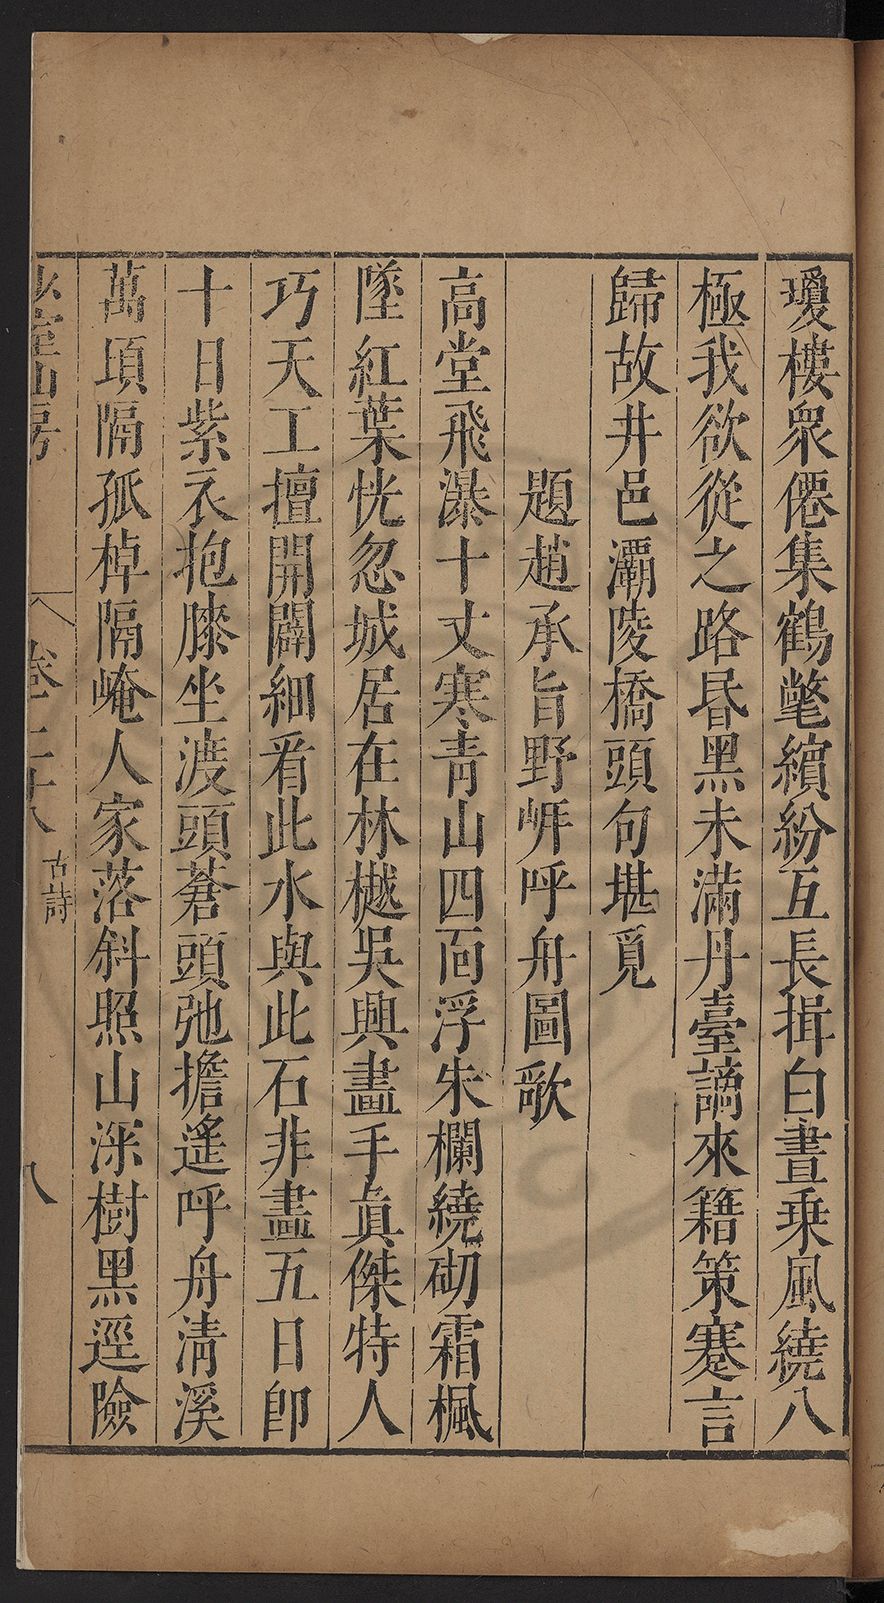 瓊樓衆僊集鶴氅繽紛互長揖白晝乗風繞八
極我欲從之路昏黑未滿丹臺謫來籍策蹇言
歸故井邑灞陵橋頭句堪覓
題趙承旨野岼呼舟圖歌
高堂飛瀑十丈寒青山四面浮朱欄繞砌霜楓
墜紅葉恍忽城居在林樾吳興畫手眞傑特人
巧天工擅開闢細看此水與此石非畫五日卽
十日紫衣抱膝坐渡頭蒼頭弛擔遙呼舟淸溪
萬頃隔孤棹隔崦人家落斜照山深樹黑逕險
山房
卷二十八
古詩
八